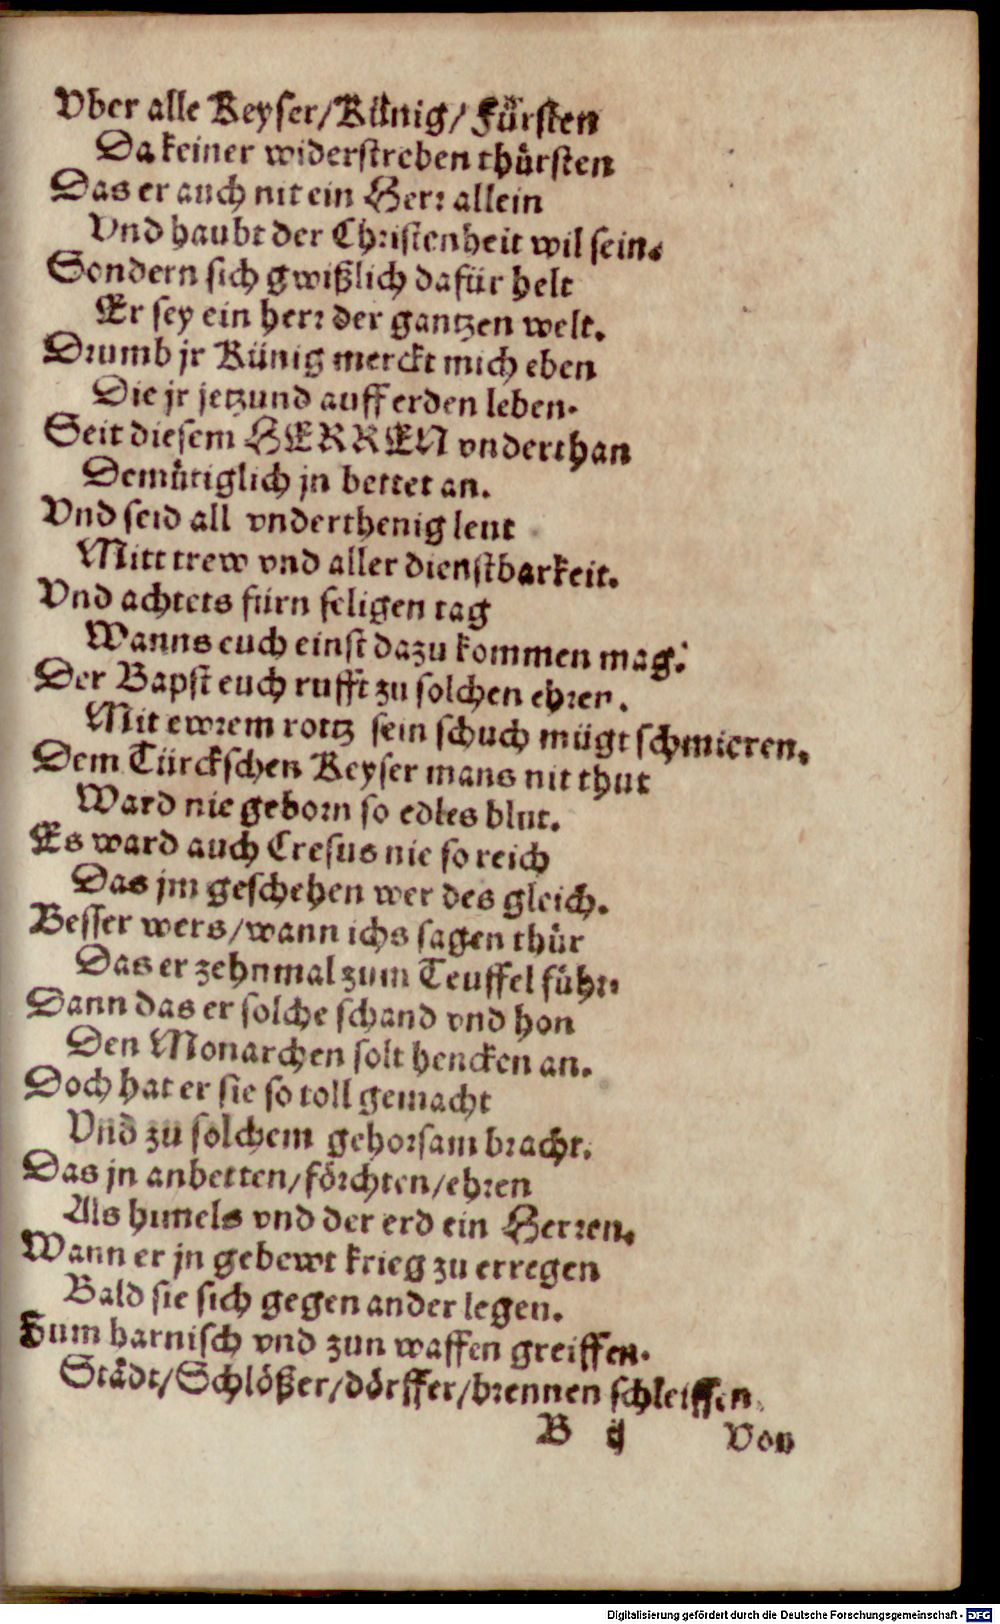 Vber alle Keyser/Künig/Fürsten
Da keiner widerstreben thürsten
Das er auch nit ein Herr allein
Vnd haubt der Christenheit wil sein.
Sondern sich gwißlich dafür helt
Er sey ein herr der gantzen welt.
Drumb jr Künig merckt mich eben
Die jr jetzund auff erden leben.
Seit diesem HERREN vnderthan
Demütiglich jn bettet an.
Vnd seid all vnderthenig leut
Mitt trew vnd aller dienstbarkeit.
Vnd achtets fürn seligen tag
Wanns euch einst dazu kommen mag.
Der Bapst euch rufft zu solchen ehren.
Mit ewrem rottz sein schuch mügt schmieren.
Dem Türckschen Keyser mans nit thut
Ward nie geborn so edles blut.
Es ward auch Cresus nie so reich
Das jm geschehen wer des gleich.
Besser wers/wann ichs sagen thür
Das er zehnmal zum Teuffel führ.
Dann das er solche schand vnd hon
Den Monarchen solt hencken an.
Doch hat er sie so toll gemacht
Vnd zu solchem gehorsam bracht.
Das jn anbetten/förchten/ehren
Als himels vnd der erd ein Herren.
Wann er jn gebewt krieg zu erregen
Bald sie sich gegen ander legen.
Zum harnisch vnd zun waffen greiffen.
Städt/Schlößer/dörffer/brennen schleiffen.
B ij Von
Digitalisierung gefördert durch die Deutsche Forschungsgemeinschaft - DFG